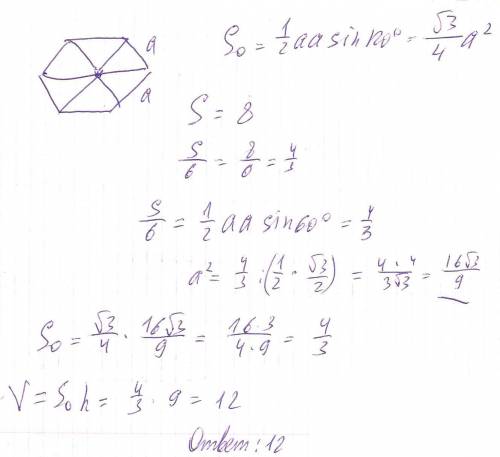 a
a
S₀ = 1/2 aa sin 120° = √3/4 a²
S = 8
S/6 = 8/6 = 4/3
S/6 = 1/2 aa sin 60° = 4/3
a² = 4/3 : (1/2 · √3/2) = 4·4/3√3 = 16√3/9
S₀ = √3/4 · 16√3/9 = 16·3/4·9 = 4/3
V = S₀ h = 4/3 · 9 = 12
Ответ: 12